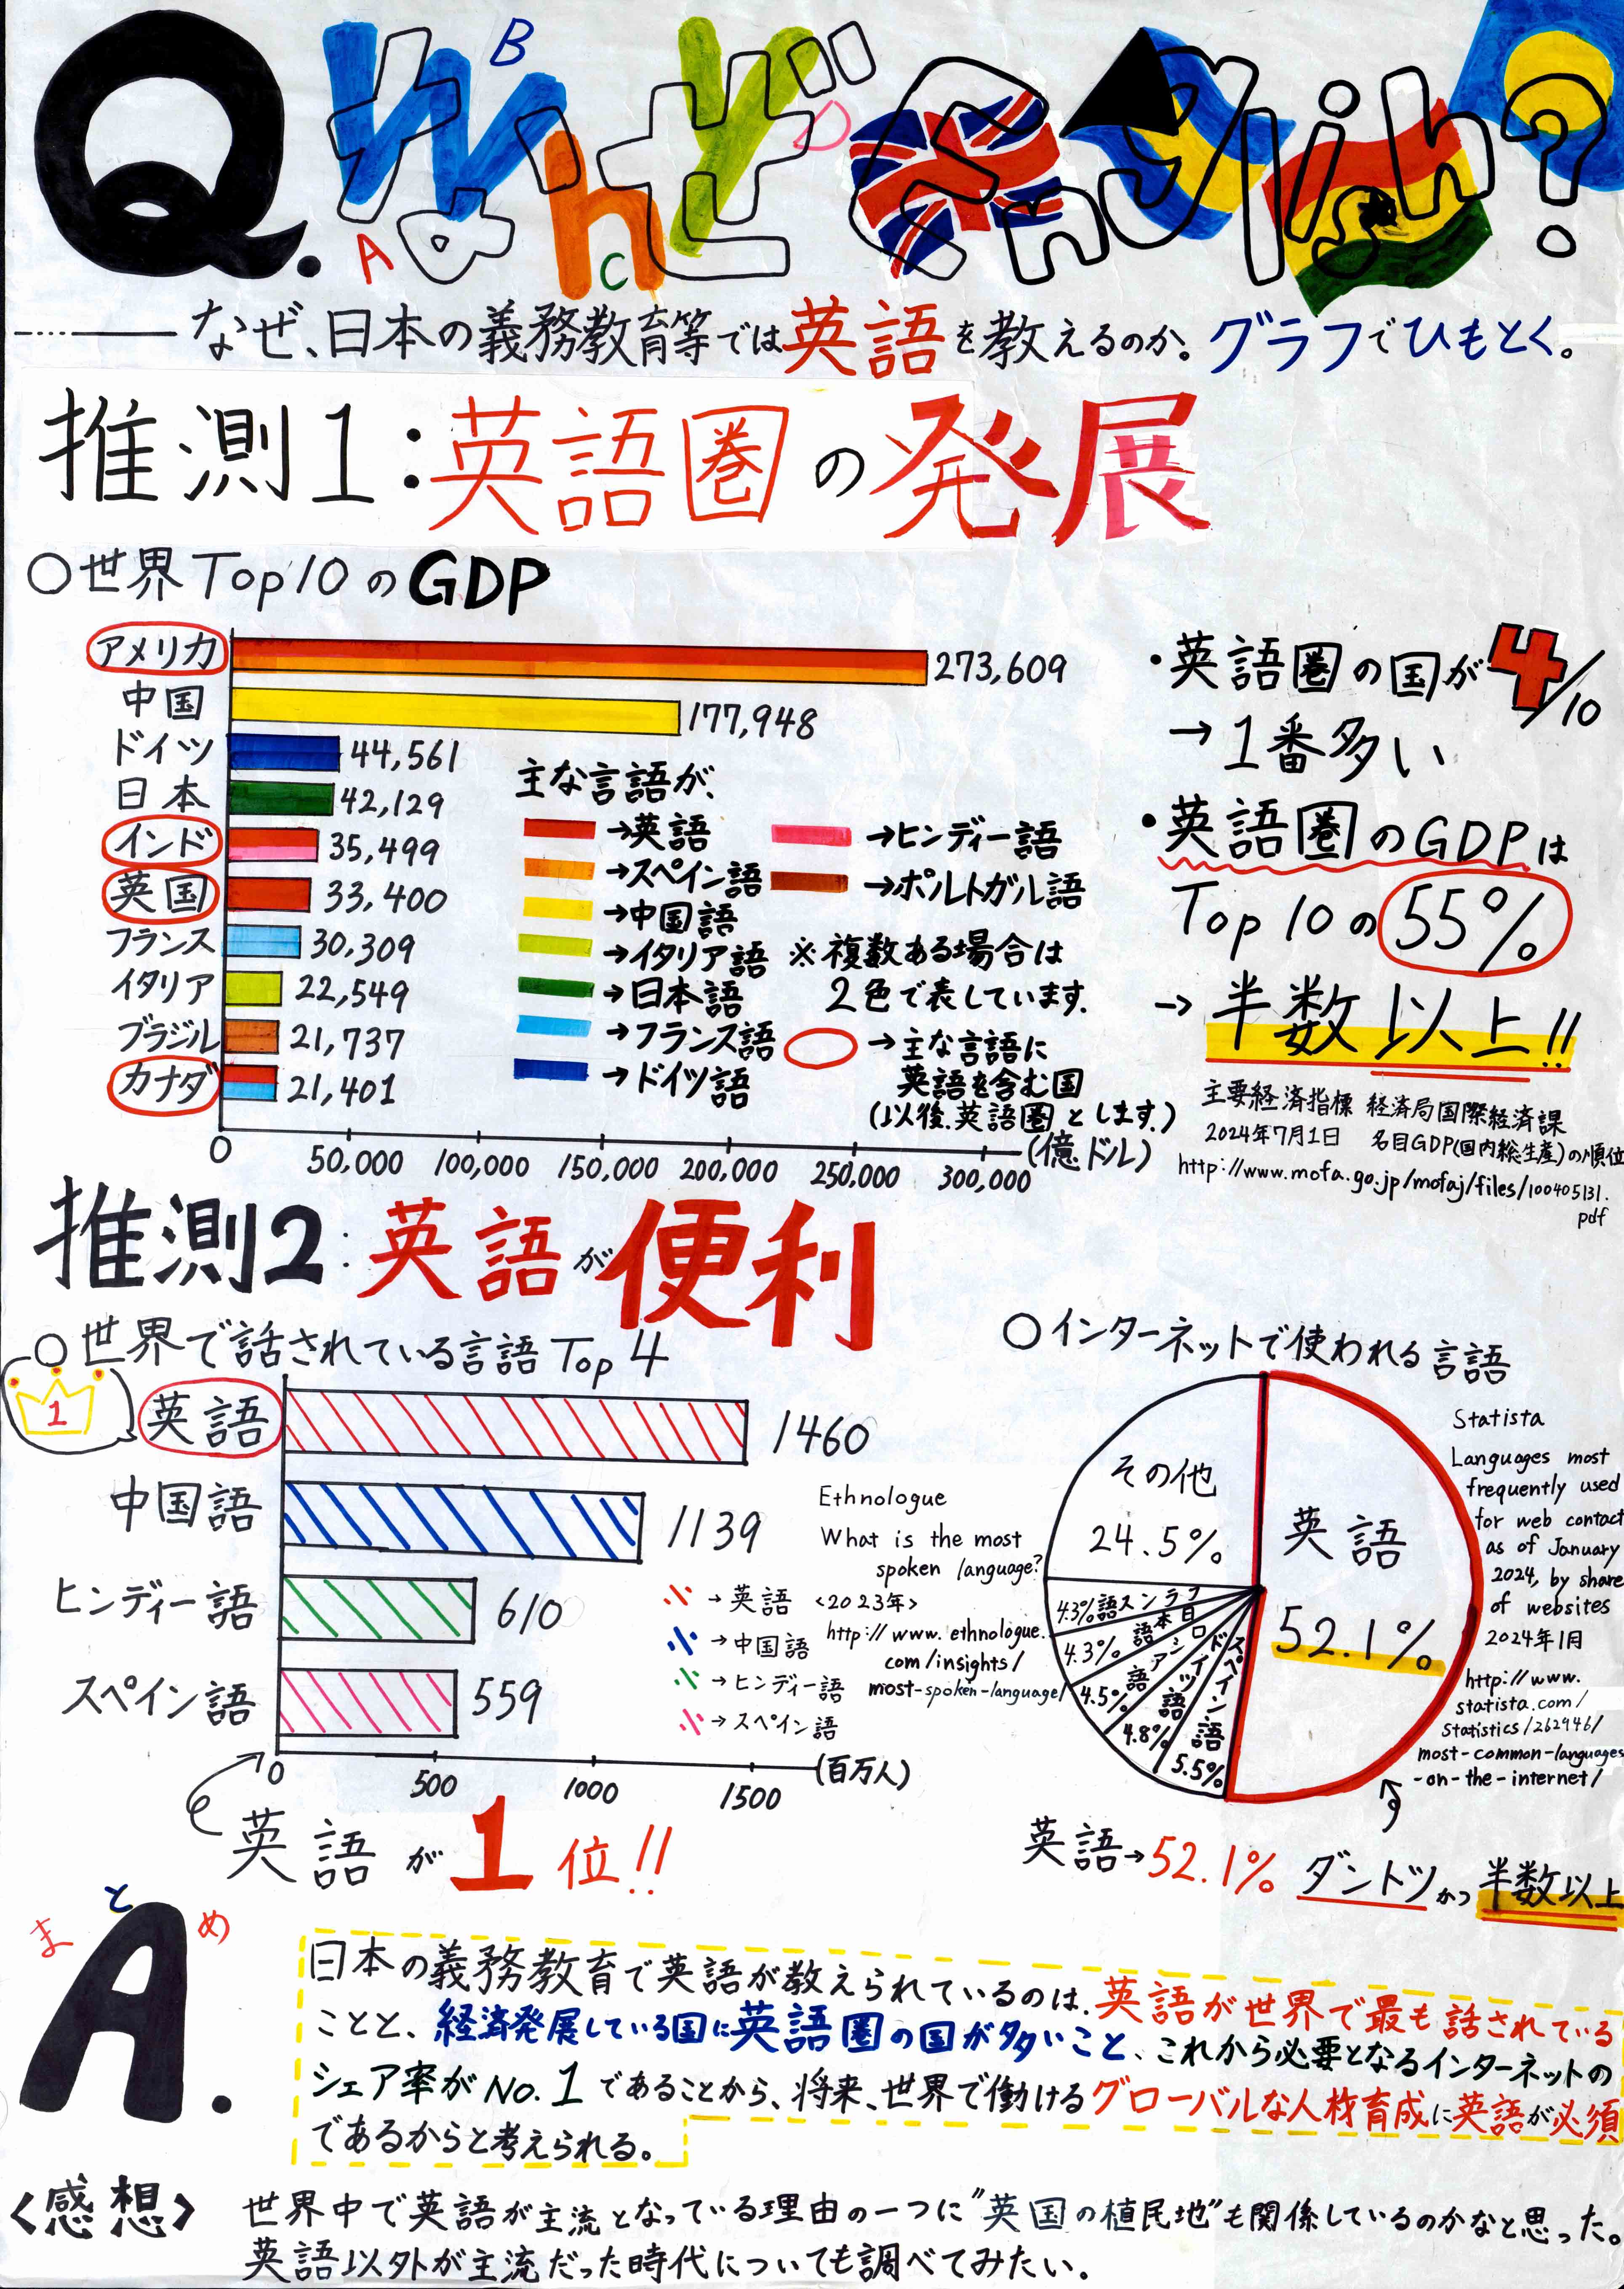 Q. Why なぜ English?
A B C D
なぜ、日本の義務教育等では英語を教えるのか。グラフでひもとく。
推測1:英語圏の発展
○世界Top10のGDP
アメリカ 273,609
中国 177,948
ドイツ 44,561
日本 42,129
インド 35,499
英国 33,400
フランス 30,309
イタリア 22,549
ブラジル 21,737
カナダ 21,401
0 50,000 100,000 150,000 200,000 250,000 300,000 (億ドル)
主な言語が、
→英語
→スペイン語
→中国語
→イタリア語
→日本語
→フランス語
→ドイツ語
→ヒンディー語
→ポルトガル語
※複数ある場合は
2色で表しています.
→主な言語に
英語を含む国
(以後、英語圏とします.)
・英語圏の国が4/10
→1番多い
・英語圏のGDPは
Top10の55%
→半数以上!!
主要経済指標 経済局国際経済課
2024年7月1日 名目GDP(国内総生産)の順位
http://www.mofa.go.jp/mofaj/files/100405131.
pdf
推測2:英語が便利
○世界で話されている言語Top4
1
英語 1460
中国語 1139
ヒンディー語 610
スペイン語 559
0 500 1000 1500 (百万人)
→英語
→中国語
→ヒンディー語
→スペイン語
Ethnologue
What is the most
spoken language?
<2023年>
http://www.ethnologue.
com/insights/
most-spoken-language/
英語が1位!!
○インターネットで使われる言語
英語
52.1%
スペイン語
5.5%
ドイツ語
4.8%
ロシア語
4.5%
日本語
4.3%
フランス語
4.3%
その他
24.5%
Statista
Languages most
frequently used
for web contact
as of January
2024, by share
of websites
2024年1月
http://www.
statista.com/
statistics/262946/
most-common-languages
-on-the-internet/
英語→52.1% ダントツかつ半数以上
まとめ
A.
日本の義務教育で英語が教えられているのは、英語が世界で最も話されている
ことと、経済発展している国に英語圏の国が多いこと、これから必要となるインターネットの
シェア率がNo.1であることから、将来、世界で働けるグローバルな人材育成に英語が必須
であるからと考えられる。
<感想>
世界中で英語が主流となっている理由の一つに"英国の植民地"も関係しているのかなと思った。
英語以外が主流だった時代についても調べてみたい。